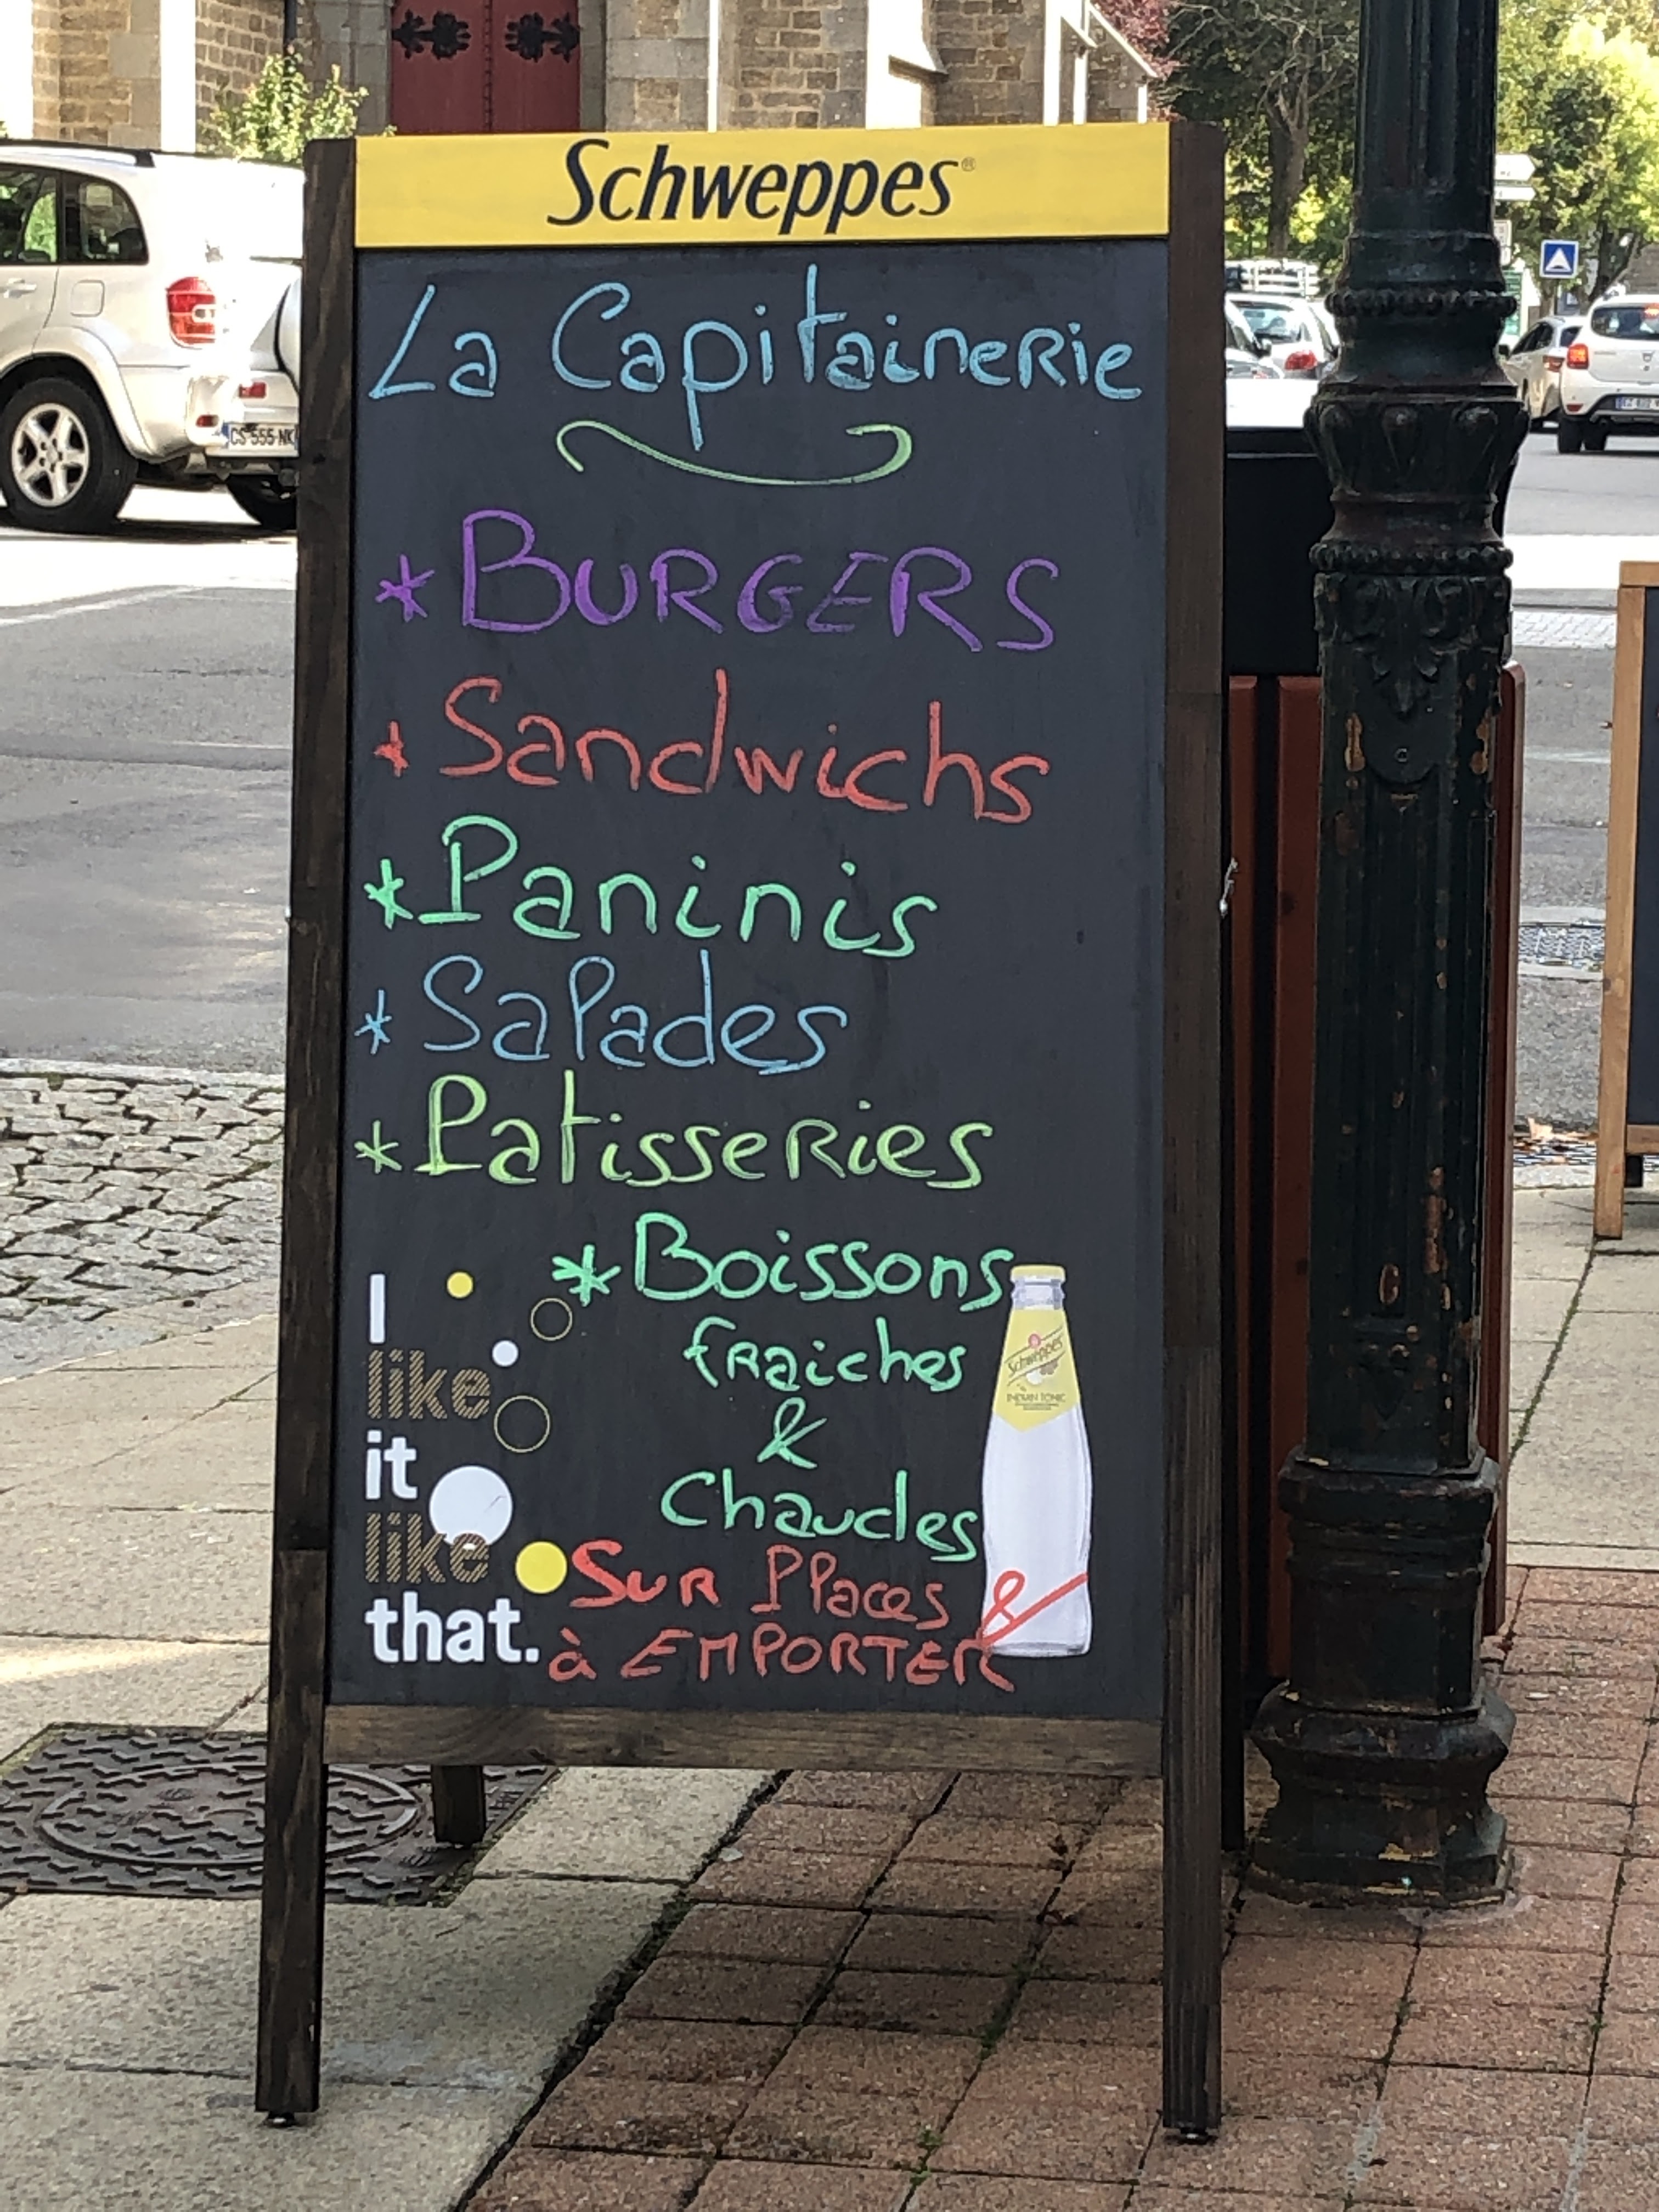 Schweppes®
La Capitainerie
* BURGERS
* Sandwichs
* Paninis
* Salades
* Patisseries
* Boissons
fraiches
&
Chaudes
Sur Places &
à EMPORTER
I
like
it
like
that.
Schweppes
INDIAN TONIC
CS 555 NK